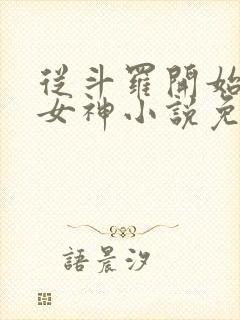 從斗羅開始
女神小說免
語晨汐